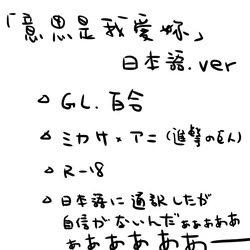 「意思是我愛妳」
日本語.ver
△ GL.百合
△ ミカサ×アニ(進撃の巨人)
△ R-18
△ 日本語に通訳したが
自信がないんだぁぁぁぁぁ
ぁあああああー